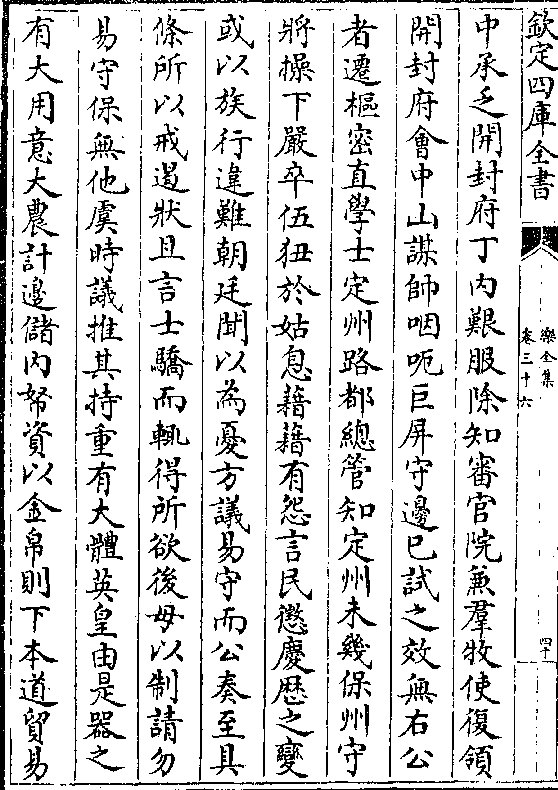 欽定四庫全書
樂全集
卷三十六
四十
中承乏開封府丁内艱服除知審官院兼羣牧使復領
開封府會中山謀帥咽呃巨屏守邊已試之效無右公
者遷樞密直學士定州路都總管知定州未幾保州守
將操下嚴卒伍狃於姑息藉藉有怨言民懲慶歴之變
或以族行違難朝廷聞以為憂方議易守而公奏至具
條所以戒遏狀且言士驕而輒得所欲後毋以制請勿
易守保無他虞時議推其持重有大體英皇由是器之
有大用意大農計邊儲内帑資以金帛則下本道貿易